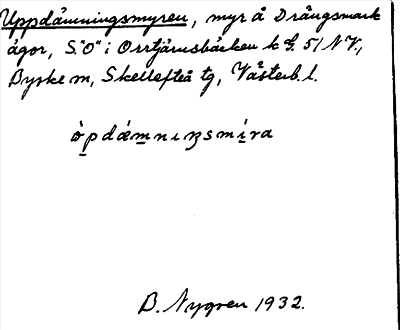 Uppdämningsmyren, myr å Drängsmark
ägor, S."O" i Orrtjärnsbäcken k bl. 51 NV,
Byske sn, Skellefteå tg, Västerb. l.
ò̱pdæm̱nıŋsmí̱ra
B. Nygren 1932.